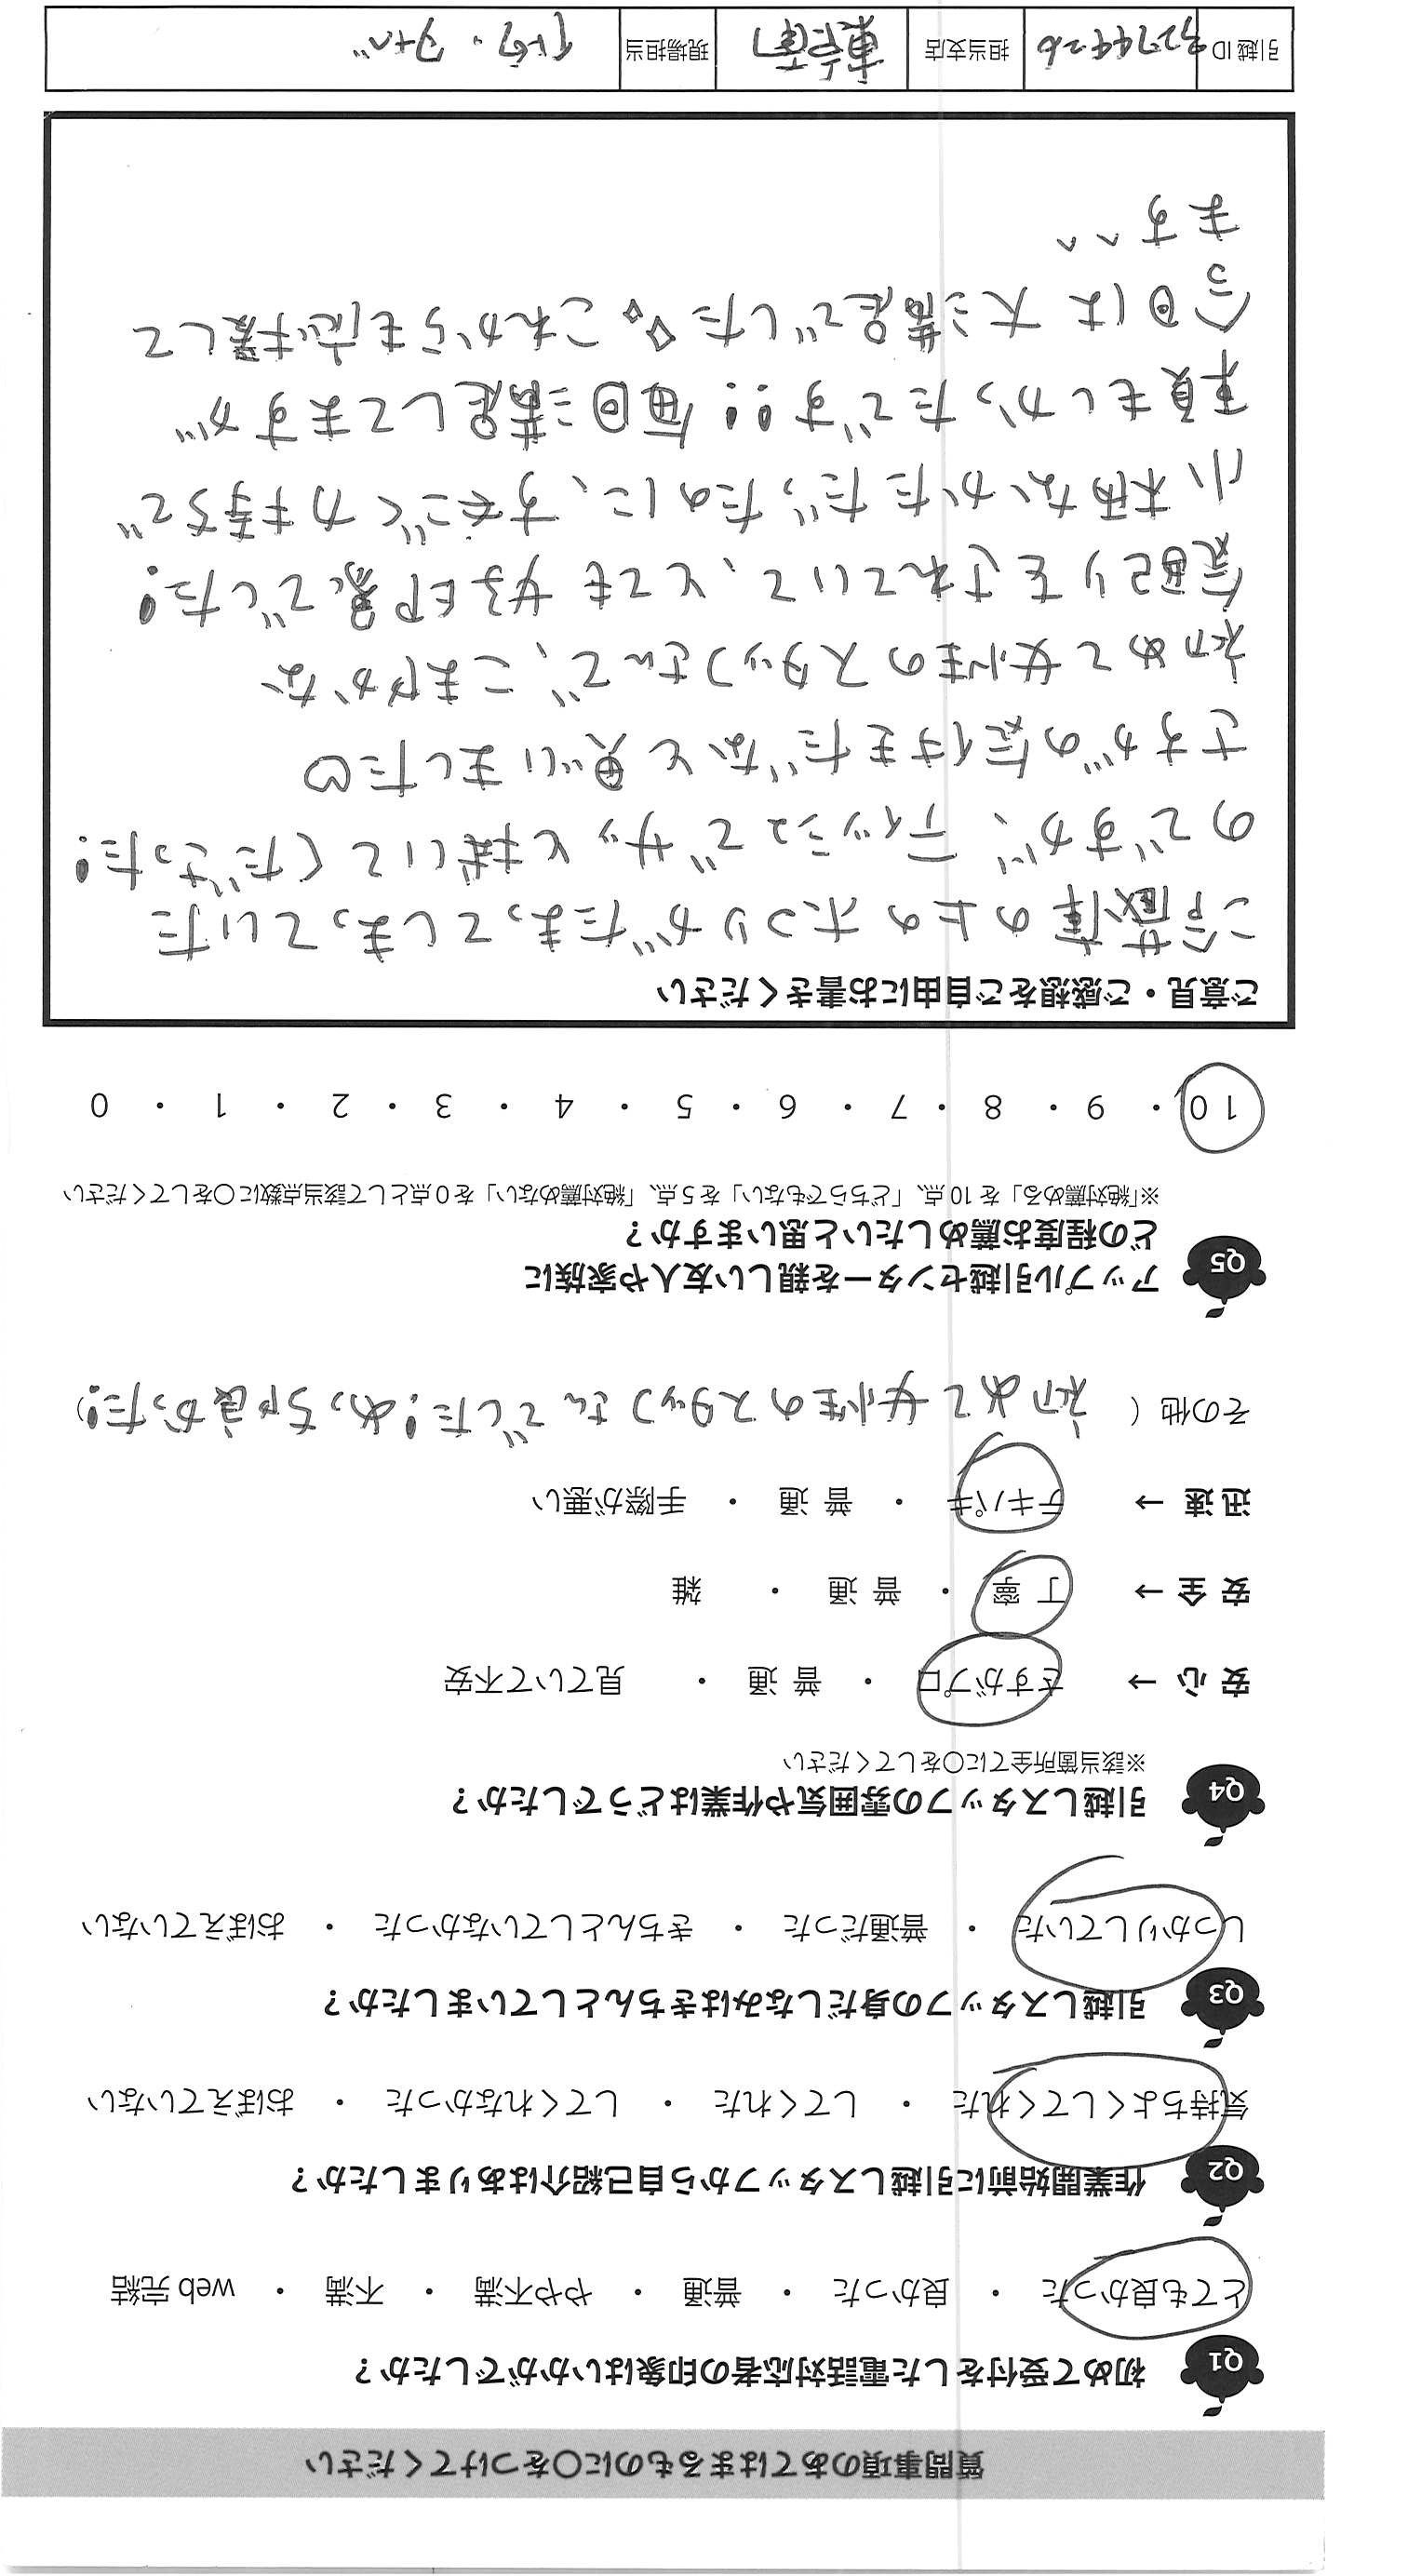 質問事項のあてはまるものに○をつけてください
Q1 初めて受付をした電話対応者の印象はいかがでしたか？
とても良かった ・ 良かった ・ 普通 ・ やや不満 ・ 不満 ・ web 完結
Q2 作業開始前に引越しスタッフから自己紹介はありましたか？
気持ちよくしてくれた ・ してくれた ・ してくれなかった ・ おぼえていない
Q3 引越しスタッフの身だしなみはきちんとしていましたか？
しっかりしていた ・ 普通だった ・ きちんとしていなかった ・ おぼえていない
Q4 引越しスタッフの雰囲気や作業はどうでしたか？
※該当箇所全てに○をしてください
安 心 → さすがプロ ・ 普 通 ・ 見ていて不安
安 全 → 丁 寧 ・ 普 通 ・ 雑
迅 速 → テキパキ ・ 普 通 ・ 手際が悪い
その他（ 初めて女性のスタッフさんでした！めっちゃ良かった！）
Q5 アップル引越センターを親しい友人や家族に
どの程度お薦めしたいと思いますか？
※「絶対薦める」を 10 点、「どちらでもない」を 5 点、「絶対薦めない」を 0 点として該当点数に○をしてください
10 ・ 9 ・ 8 ・ 7 ・ 6 ・ 5 ・ 4 ・ 3 ・ 2 ・ 1 ・ 0
ご意見・ご感想をご自由にお書きください
冷蔵庫の上のホコリがたまってしまっていた
のですが、ティッシュでサッと拭いてくださった！
さすがの気付きだなと思いました♡
初めて女性のスタッフさんで、こまやかな
気配りをされていて、とても好印象でした！
小柄なかただったのに、すごく力持ちで
頼もしかったです!! 毎回満足してますが
今回は大満足でした これからも応援して
ます^^
引越 ID 担当支店 東京 現場担当